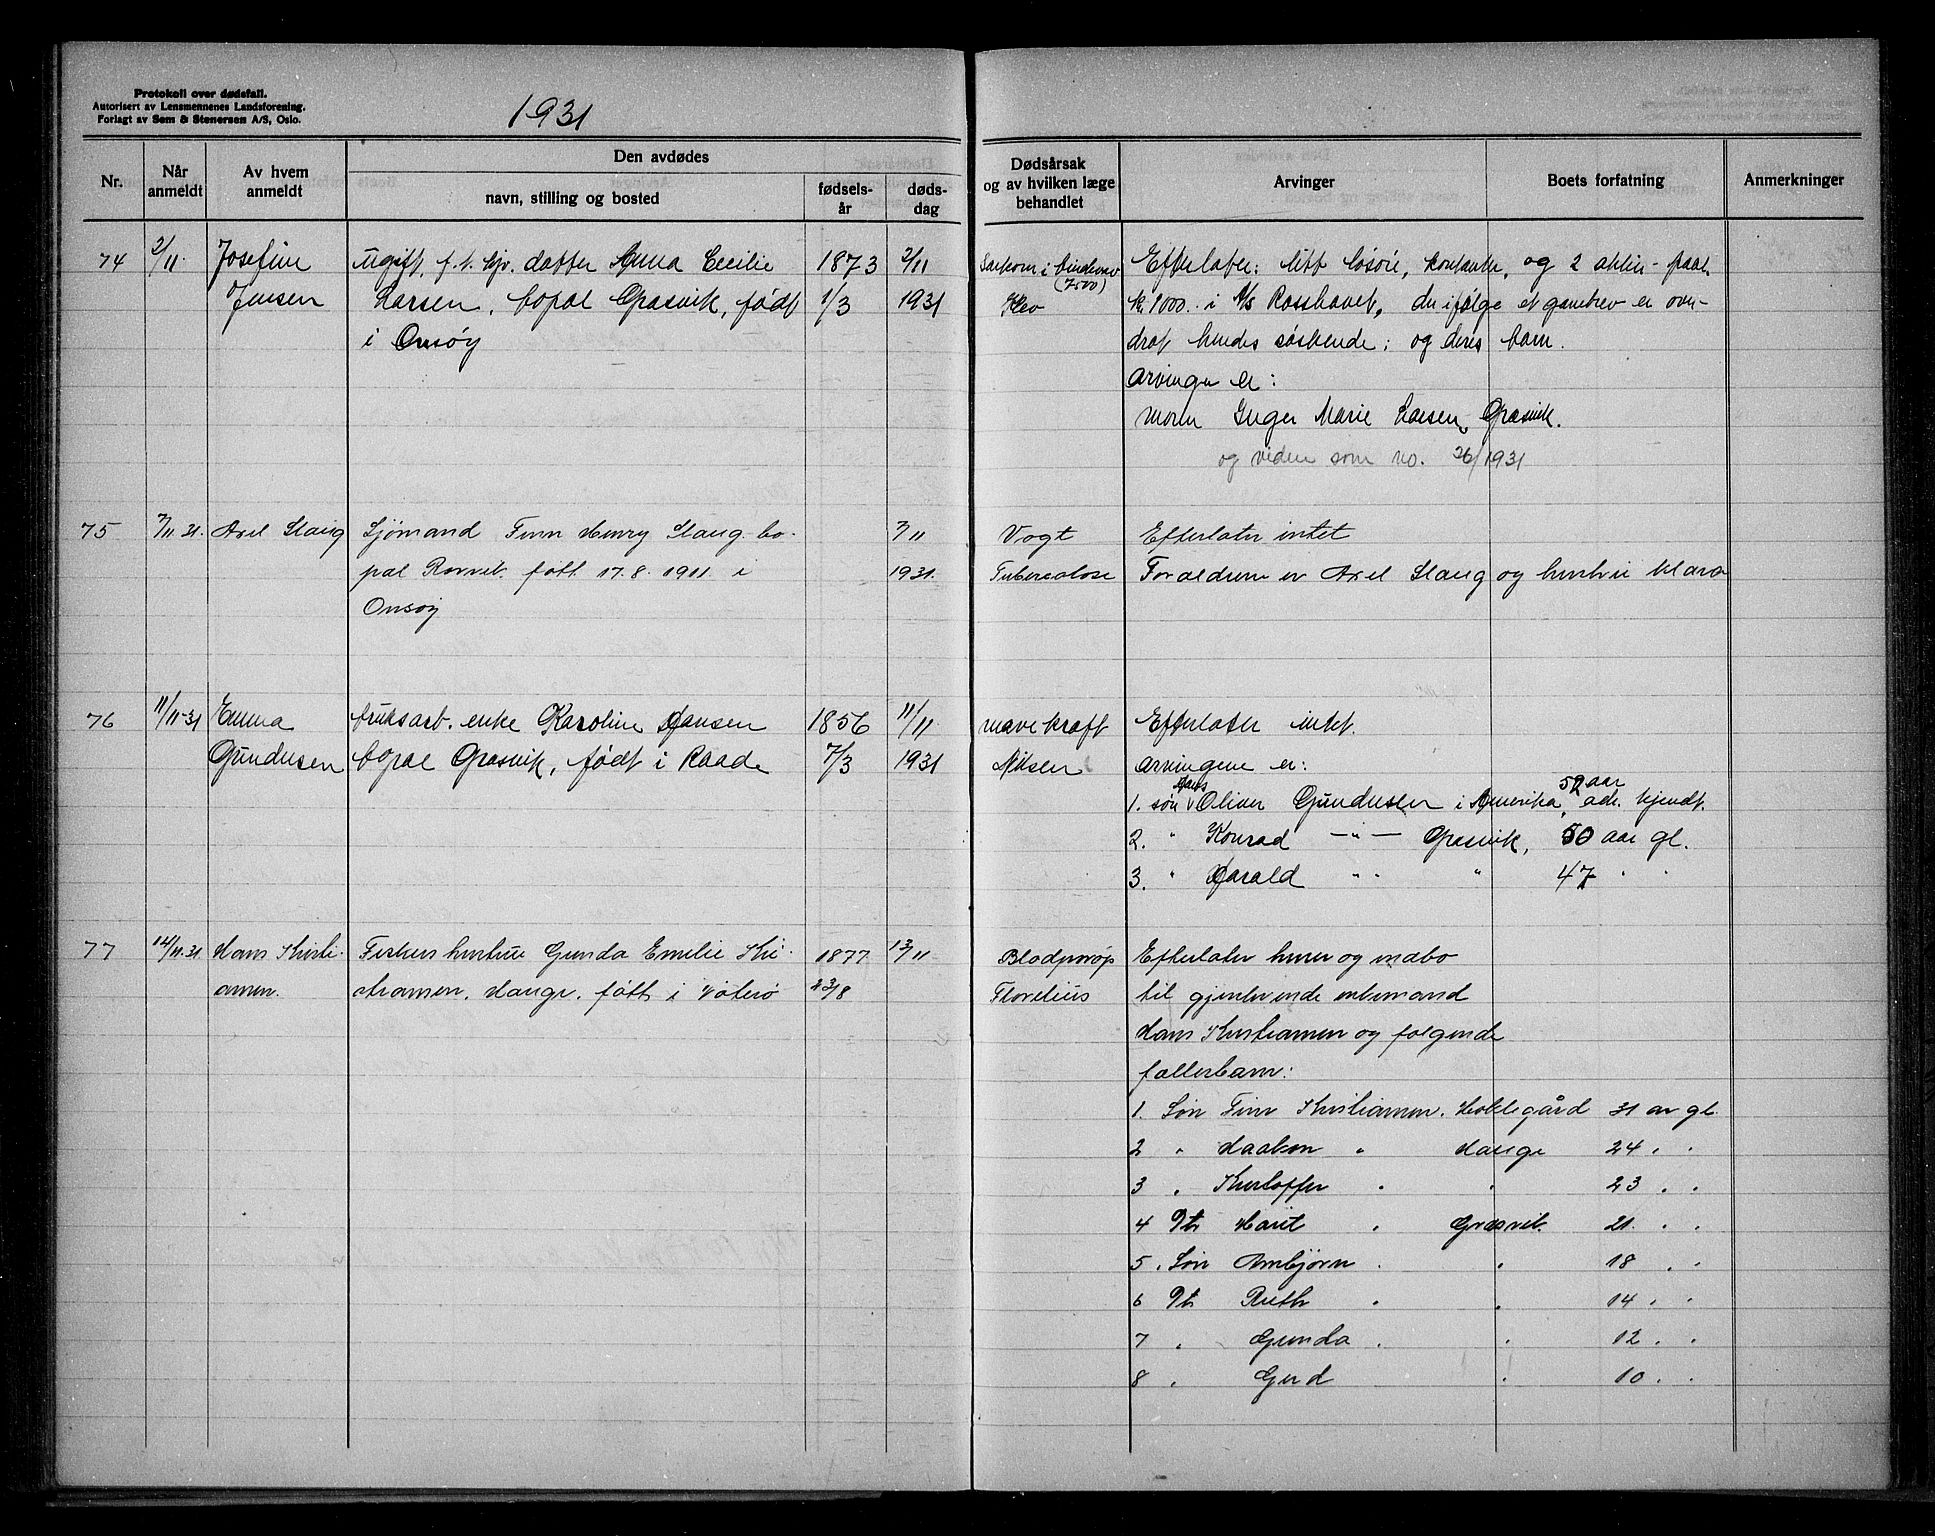 Protokoll over dødsfall.
Autorisert av Lensmennenes Landsforening.
Forlagt av Sem & Stenersen A/S, Oslo.
1931
Nr.
Når anmeldt
Av hvem anmeldt
Den avdødes
navn, stilling og bosted
fødsels-år
døds-dag
Dødsårsak og av hvilken læge behandlet
Arvinger
Boets forfatning
Anmerkninger
74 2/11 Josefine ugift, f.t. hjv. datter Anna Cecilie 1873 2/11
Jensen Larsen, bopæl Græsvik, født 1/3 1931
i Onsøy
Sarkom i (7500)
Efterlater: litt løsøre, kontanter, og 2 aktier - paal.
kr. 1000. i A/S Rosshavet, der ifølge et gavebrev er over-
drat hendes søskende; og deres barn.
Arvinger er:
moren Inger Marie Larsen, Græsvik.
og videre som no. 26/1931
75 7/11 31. Axel Slang Sjømand Finn Henry Slang bo- 7/11
pæl Rørvik. født 17.8.1911 i 1931.
Onsøy
Vogt Efterlater intet
Tuberculose Forældrene er Axel Slang og hustru Klara
76 11/11-31 Emma bruksarb. enke Karoline Hansen 1856 11/11
Gundersen bopæl Græsvik, født i Raade 7/3 1931
mavekræft Efterlater intet.
Nilsen Arvingene er:
1. søn Hans Oliver Gundersen i Amerika, 52 aar adr. kjendt.
2. " Konrad —"— Græsvik, 50 aar gl.
3. " Harald " " " 47 " "
77 14/11.31 Hans Kristi- Fiskers hustru Gunda Emilie Kri- 1877 13/11
ansen. stiansen, Hauge, født i 23/8
Blodpropp Efterlater huse og indbo
Florelius til gjenlevende enkemand
Hans Kristiansen og følgende
fællesbarn:
1. Søn Finn Kristiansen. Holtegård 31 år gl.
2 " Haakon " Hauge 24 " "
3 " Kristoffer " " 23 " "
4 Dtr Marit " Græsvik. 21 " "
5 Søn Arnbjørn " " 18 " "
6 Dtr Ruth " " 14 " "
7 " Gunda " " 12 " "
8 " Gerd " 10 " "